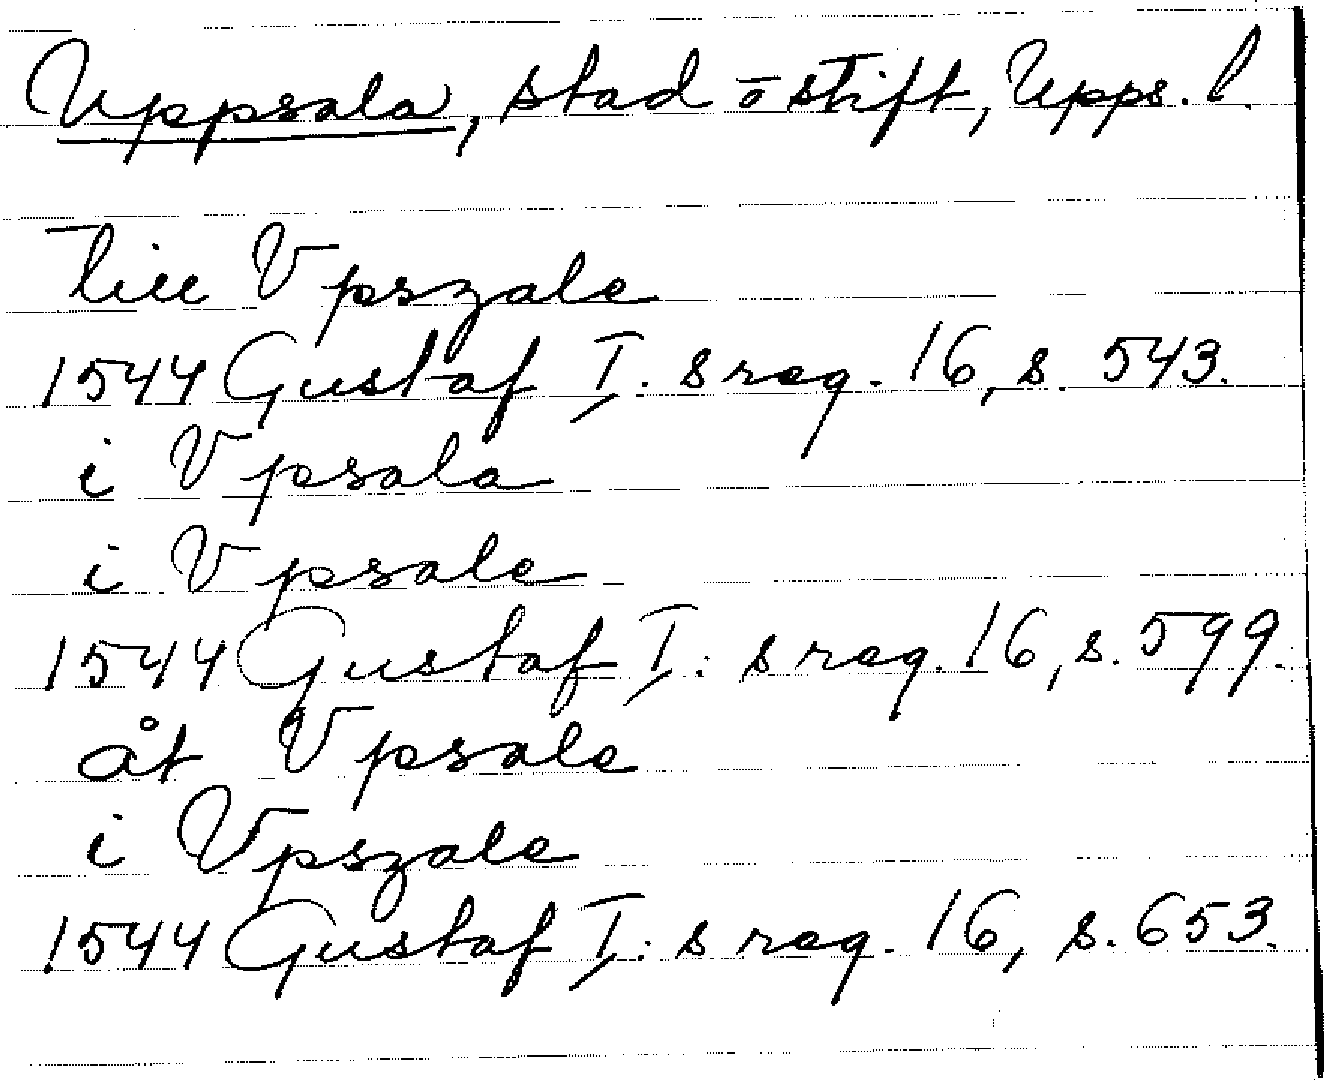 Uppsala, stad o stift, Upps. l.
till Vpszale
1544 Gustaf I. s reg. 16, s. 543.
i Vpsala
i Vpsale
1544 Gustaf I: s reg. 16, s. 599.
åt Vpsale
i Vpszale
1544 Gustaf I: s reg. 16, s. 653.